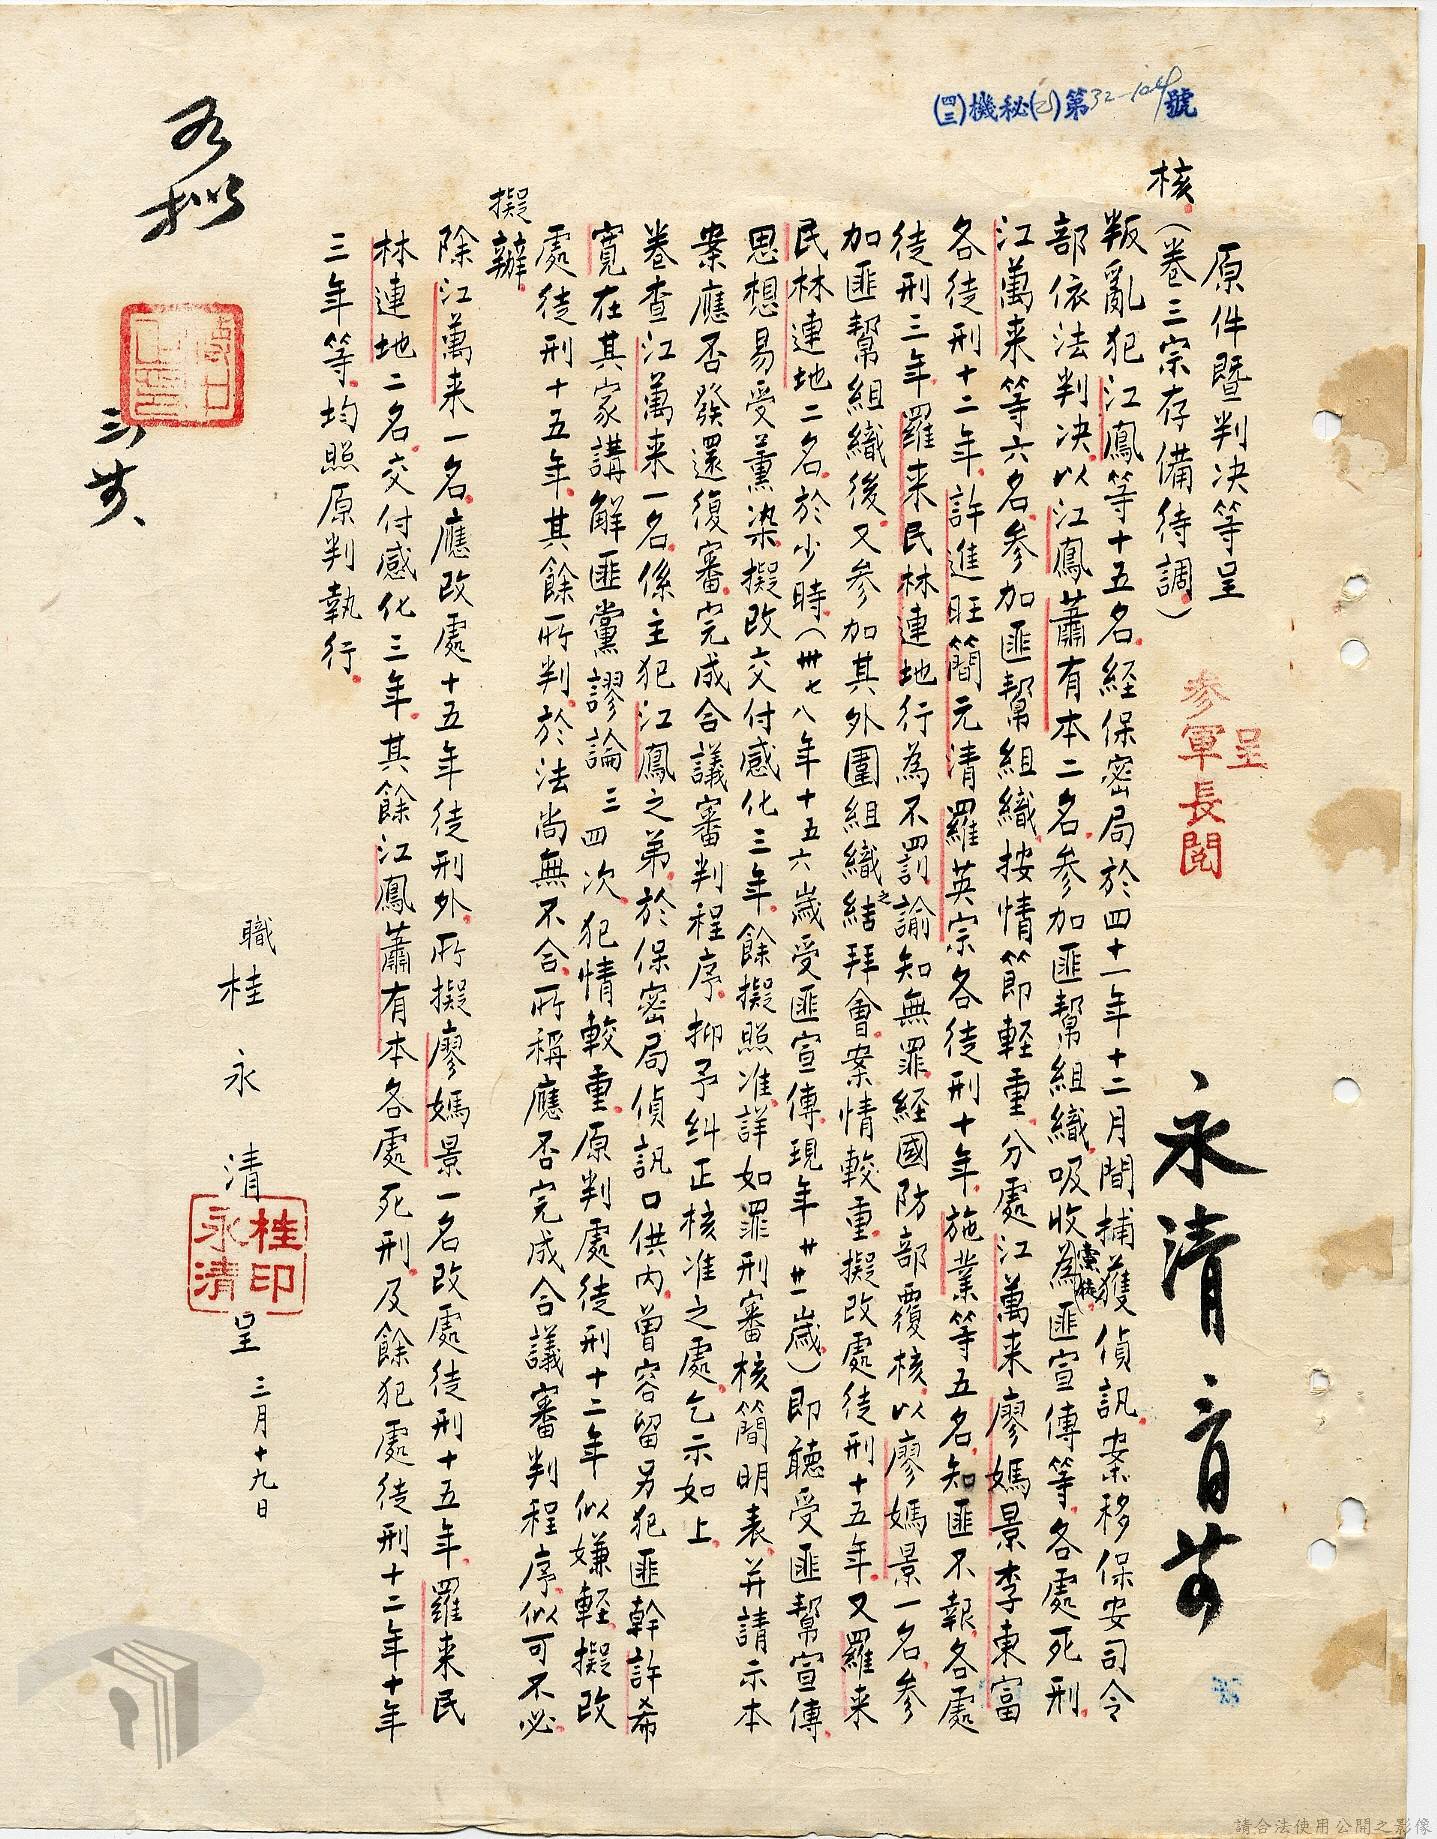 (四三)機秘(乙)第32-104號
原件暨判決等呈
核。(卷三宗存備待調。)
呈
參軍長閱
永清
叛亂犯江鳳等十五名。經保密局於四十一年十二月間捕獲偵訊。案移保安司令
部依法判決。以江鳳蕭有本二名。參加匪幫組織。吸收黨徒為匪宣傳等。各處死刑。
江萬來等六名。參加匪幫組織。按情節輕重。分處江萬來廖媽景李東富
各徒刑十二年。許進旺簡元清羅英宗各徒刑十年。施業等五名。知匪不報。各處
徒刑三年。羅來民林連地行為不罰。諭知無罪。經國防部覆核。以廖媽景一名。參
加匪幫組織後。又參加其外圍組織之結拜會。案情較重。擬改處徒刑十五年。又羅來
民林連地二名。於少時。(卅七八年十五六歲受匪宣傳。現年廿廿一歲)即聽受匪幫宣傳。
思想易受薰染。擬改交付感化三年。餘擬照准。詳如罪刑審核簡明表。并請示本
案應否發還復審。完成合議審判程序。抑予糾正核准之處。乞示如上。
卷查江萬來一名。係主犯江鳳之弟。於保密局偵訊口供內。曾容留另犯匪幹許希
寬在其家講解匪黨謬論三四次。犯情較重。原判處徒刑十二年似嫌輕。擬改
處徒刑十五年。其餘所判。於法尚無不合。所稱應否完成合議審判程序。似可不必。
擬辦。
除江萬來一名。應改處十五年徒刑外。所擬廖媽景一名改處徒刑十五年。羅來民
林連地二名。交付感化三年。其餘江鳳蕭有本各處死刑。及餘犯處徒刑十二年十年
三年等。均照原判執行。
職桂永清呈 三月十九日
桂永清印
如擬
請合法使用公開之影像